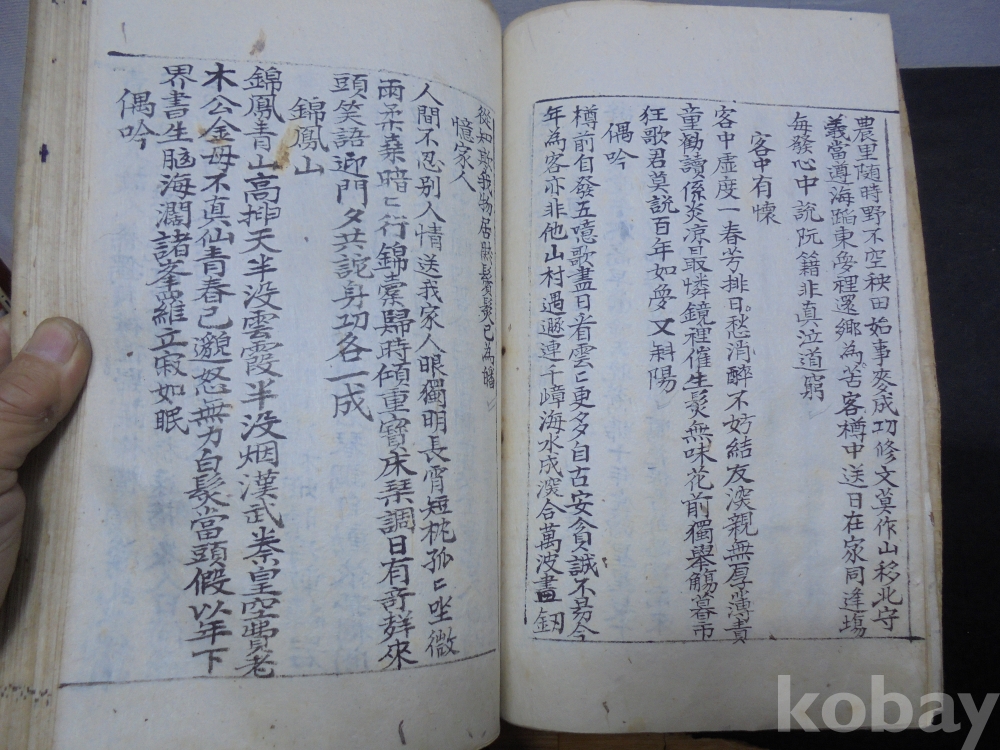 農里随時野不空秧田始事麥成功修文莫作山移北守
義當遵海蹈東夢裡還鄉為苦客樽中送日在家同逢塲
每發心中説阮籍非真泣道窮
客中有懷
客中虛度一春芳排日愁消醉不妨結友深親無厚薄責
童勤讀係炎凉最憐鏡裡催生髮無味花前獨舉觴暮市
狂歌君莫説百年如夢又斜陽
偶吟
樽前自發五噫歌盡日看雲〻更多自古安貧誠不易今
年為客亦非他山村遇遯連千嶂海水成深合萬波書釼
從如敦我物居然鬂髮已為皤
憶家人
人間不忍别人情送我家人眼獨明長宵短枕孤〻坐微
雨柔桑暗〻行錦槖歸時傾重寶床琹調日有奇群來
頭笑語迎門夕共説身功各一成
錦鳳山
錦鳳青山高排天半没雲霞半没烟漢武秦皇空費老
木公金母不真仙青春已邈怒無力白髮當頭假以年下
界書生脳海濶諸峯羅立寂如眠
偶吟
kobay